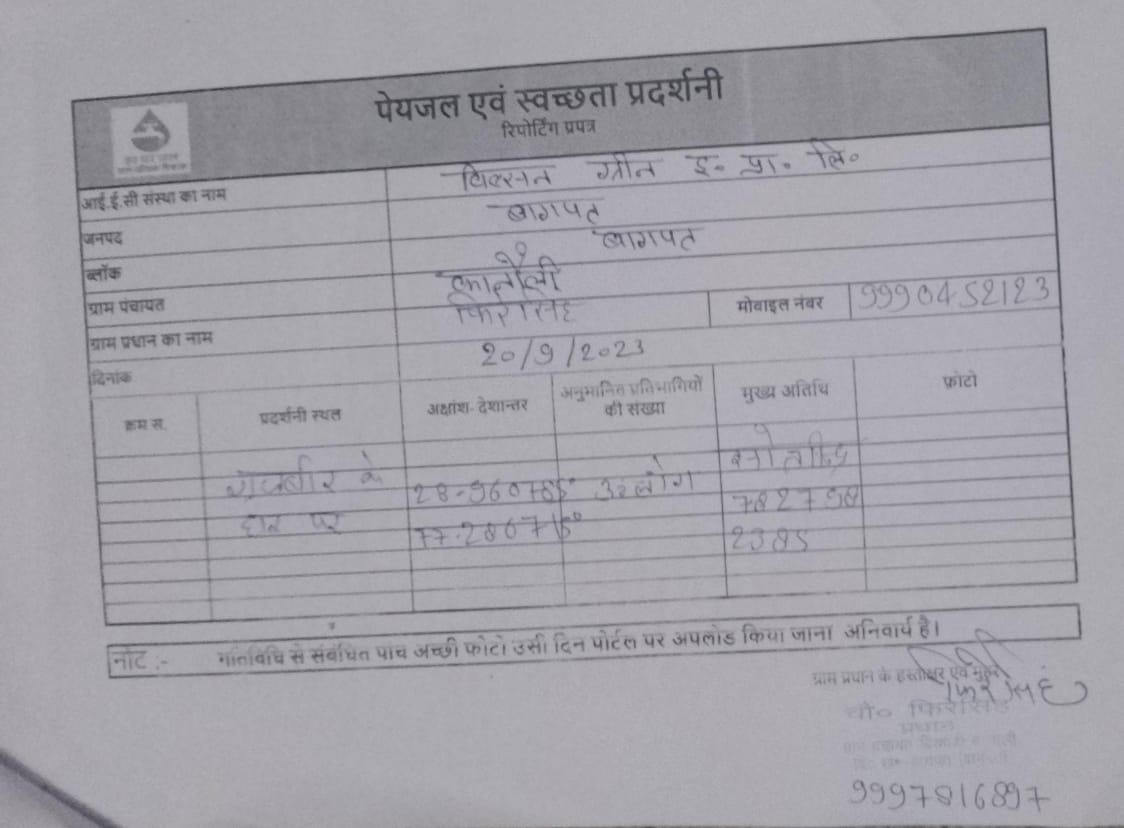 पेयजल एवं स्वच्छता प्रदर्शनी
रिपोर्टिंग प्रपत्र
आई.ई.सी संस्था का नाम विल्सन ग्रीन इ॰ प्रा॰ लि॰
जनपद बागपत
ब्लॉक बागपत
ग्राम पंचायत
ग्राम प्रधान का नाम फिरेसिंह मोबाइल नंबर 9990452123
दिनांक 20/9/2023
क्रम स. प्रदर्शनी स्थल अक्षांश- देशान्तर अनुमानित प्रतिभागियों की संख्या मुख्य अतिथि फ़ोटो
राजबीर के 28.960785° लोग
पर 77.280715° 782798
2385
नोट :- गतिविधि से संबंधित पाच अच्छी फोटो उसी दिन पोर्टल पर अपलोड किया जाना अनिवार्य है।
ग्राम प्रधान के हस्ताक्षर एवं मुहर
फिरेसिंह
चौ० फिरेसिंह
प्रधान
9997816897